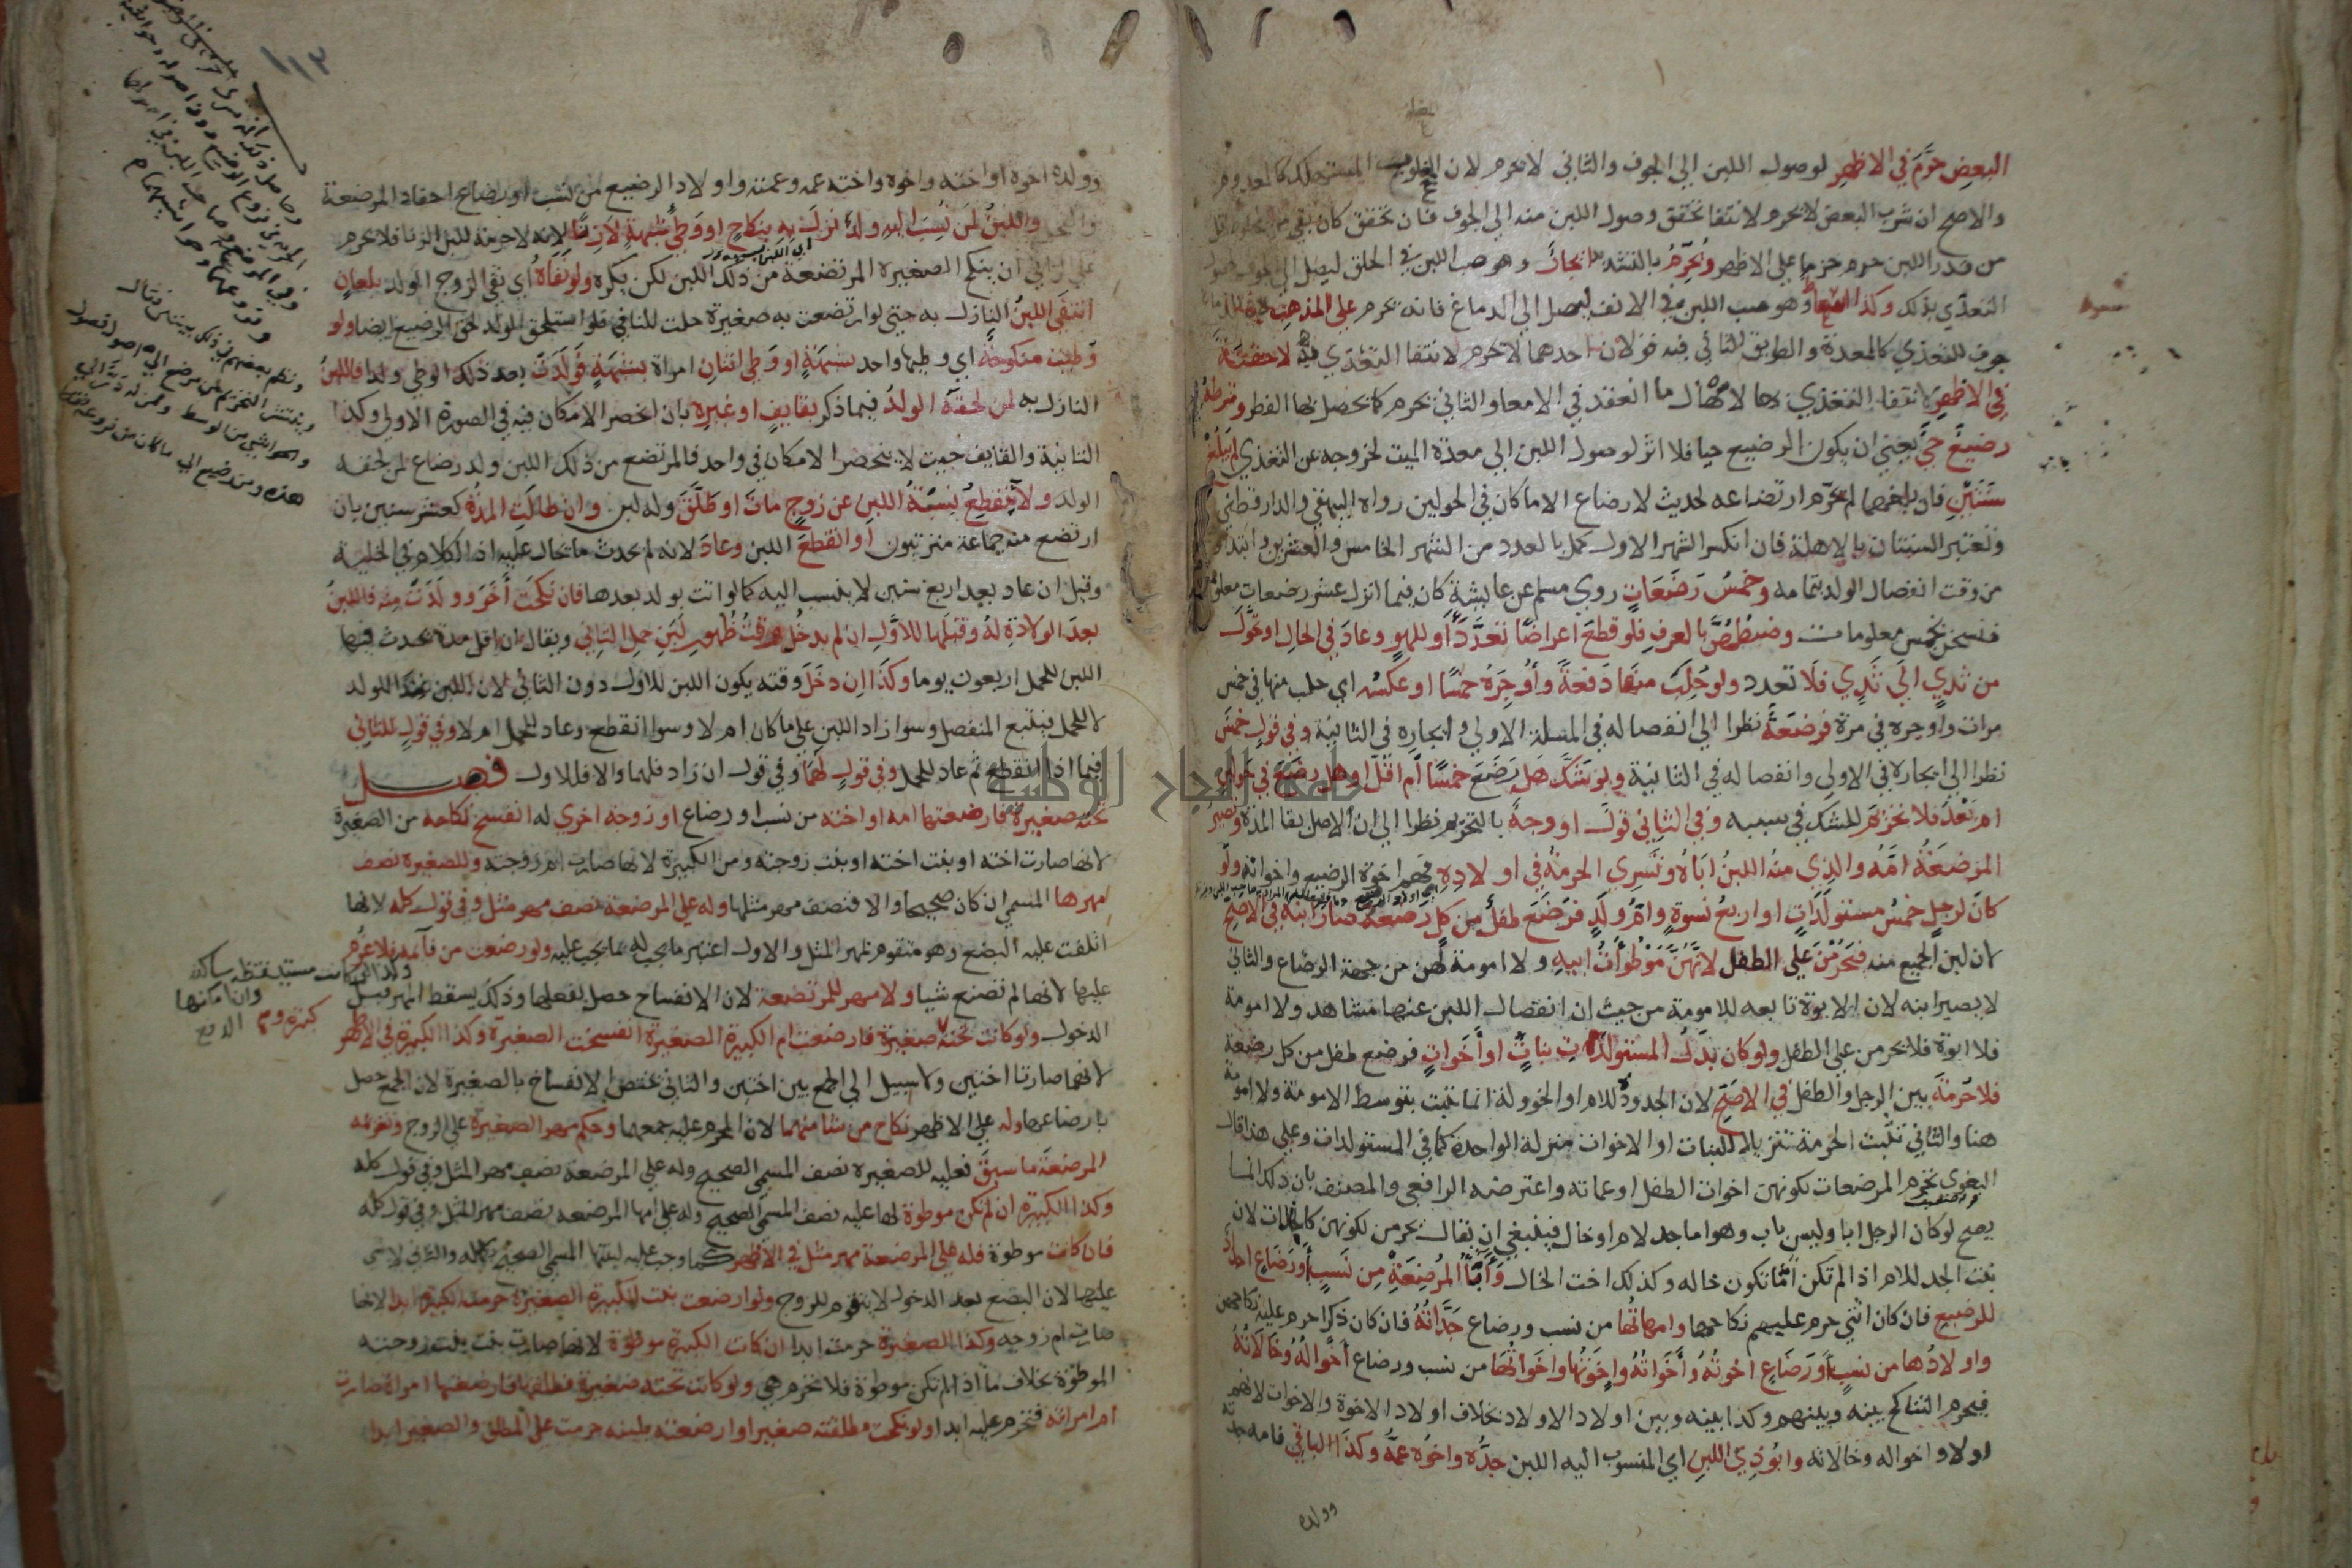 البعض حرم في الاظهر لوصول اللبن الي الجوف والثاني لا يحرم لان المغلوب المستهلك كالمعدوم
والاصح ان شرب البعض لا يحرم لانتفا تحقق وصول اللبن منه الي الجوف فان تحقق كان بقي من المخلوط اقل
من قدر اللبن حرم جزما علي الاظهر ويحرم بالتشديد ايجار وهو صب اللبن في الحلق ليصل الي الجوف لحصول
التغذي بذلك وكذا اسعاط وهو صب اللبن في الانف ليصل الي الدماغ فانه يحرم علي المذهب
جوف للتغذي كالمعدة والطريق الثاني فيه قولان احدهما لا يحرم لانتفا التغذي فيه لا حقنة
في الاظهر لانتفا التغذي بها لانها لاسهال ما انعقد في الامعا والثاني تحرم كما يحصل بها الفطر وشرطه
رضيع حي يعني ان يكون الرضيع حيا فلا اثر لوصول اللبن الي معدة الميت لخروجه عن التغذي لم يبلغ
سنتين فان بلغهما لم يحرم ارتضاعه لحديث لا رضاع الا ما كان في الحولين رواه البيهقي والدارقطني
وتعتبر السنتان بالاهلة فان انكسر الشهر الاول كمل بالعدد من الشهر الخامس والعشرين وابتداؤهما
من وقت انفصال الولد بتمامه وخمس رضعات روي مسلم عن عايشة كان فيما انزل عشر رضعات معلومات
فنسخن بخمس معلومات وضبطهن بالعرف فلو قطع اعراضا تعدد او للهو وعاد في الحال او تحول
من ثدي الي ثدي فلا تعدد ولو حلب منها دفعة واوجره خمسا او عكسه اي حلب منها في خمس
مرات واوجره في مرة فرضعة نظرا الي انفصاله في المسلة الاولي وايجاره في الثانية وفي قول خمس
نظرا الي ايجاره في الاولي وانفصاله في الثانية ولو شك هل رضع خمسا ام اقل او هل رضع في حولين
ام بعد فلا تحريم للشك في سببه وفي الثاني قول او وجه بالتحريم نظرا الي ان الاصل بقا المدة وتصير
المرضعة امه والذي منه اللبن اباه وتسري الحرمة في اولاده فهم اخوة الرضيع واخواته ولو
كان لرجل خمس مستولدات او اربع نسوة وام ولد فرضع طفل من كل رضعة صار ابنه في الاصح
لان لبن الجميع منه فيحرمن علي الطفل لانهن موطوأت ابيه ولا امومة لهن من جهة الرضاع والثاني
لا يصير ابنه لان الابوة تابعه للامومة من حيث ان انفصال اللبن عنها مشاهد ولا امومة
فلا ابوة فلا يحرمن علي الطفل ولو كان بدل المستولدات بنات او اخوات فرضع طفل من كل رضعة
فلا حرمة بين الرجل والطفل في الاصح لان الجدودة للام او الخوولة انما تثبت بتوسط الامومة ولا امومة
هنا والثاني تثبت الحرمة تنزيلا للبنات او الاخوات منزلة الواحدة كما في المستولدات وعلي هذا قال
البغوي تحرم المرضعات لكونهن اخوات الطفل او عماته واعترضه الرافعي والمصنف بان ذلك انما
يصح لو كان الرجل ابا وليس باب وهو اما جد لام او خال فينبغي ان يقال يحرمن لكونهن كالخالات لان
بنت الجد للام اذا لم تكن اما تكون خاله وكذلك اخت الخال وابا المرضعة من نسب او رضاع اجداد
للرضيع فان كان انثي حرم عليهم نكاحها وامهاتها من نسب ورضاع جداته فان كان ذكرا حرم عليه نكاحهن
واولادها من نسب او رضاع اخوته واخواته واخوتها واخواتها من نسب ورضاع اخواله وخالاته
فيحرم التناكح بينه وبينهم وكذا بينه وبين اولاد الاولاد بخلاف اولاد الاخوة والاخوات لانهم
اولاد اخواله وخالاته وابو ذي اللبن اي المنسوب اليه اللبن جده واخوه عمه وكذا الباقي فامه جدته
وولده
١١٣
وولده اخوه او اخته واخوه واخته عمه وعمته واولاد الرضيع من نسب او رضاع احفاد المرضعة
واللبن لمن نسب اليه ولد نزل به بنكاح او وطئ شبهة لا زنا لانه لا حرمة للبن الزنا فلا يحرم
علي الزاني ان ينكح الصغيرة المرتضعة من ذلك اللبن لكن يكره ولو نفاه اي نفي الزوج الولد بلعان
انتفي اللبن النازل به حتي لو ارتضعت به صغيرة حلت للنافي فلو استلحق الولد لحق الرضيع ايضا ولو
وطئت منكوحة اي وطيها واحد بشبهة او وطي اثنان امراة بشبهة فولدت بعد ذلك الوطي ولدا فاللبن
النازل به لمن لحقه الولد فيما ذكر بقايف او غيره بان انحصر الامكان فيه في الصورة الاولي وكذا
الثانية والقايف حيث لا ينحصر الامكان في واحد فالمرتضع من ذلك اللبن ولد رضاع لمن لحقه
الولد ولا تنقطع نسبة اللبن عن زوج مات او طلق وله لبن وان طالت المدة كعشر سنين بان
ارتضع منه جماعة مترتبون او انقطع اللبن وعاد لانه لم يحدث ما يحال عليه اذ الكلام في الخلية
وقيل ان عاد بعد اربع سنين لا ينسب اليه كما لو اتت بولد بعدها فان نكحت اخر وولدت منه فاللبن
بعد الولادة له وقبلها للاول ان لم يدخل وقت ظهور لبن حمل الثاني ويقال ان اقل مدة يحدث فيها
اللبن للحمل اربعون يوما وكذا ان دخل وقته يكون اللبن للاول دون الثاني لان اللبن غذا للولد
لا للحمل فيتبع المنفصل وسوا زاد اللبن علي ما كان ام لا وسوا انقطع وعاد للحمل ام لا وفي قول للثاني
فيما اذا انقطع ثم عاد للحمل وفي قول لهما وفي قول ان زاد فلهما والا فللاول فصل
تحته صغيرة فارضعتها امه او اخته من نسب او رضاع او زوجة اخري له انفسخ نكاحه من الصغيرة
لانها صارت اخته او بنت اخته او بنت زوجته ومن الكبيرة لانها صارت ام زوجته وللصغيرة نصف
مهرها المسمي ان كان صحيحا والا فنصف مهر مثلها وله علي المرضعة نصف مهر مثل وفي قول كله لانها
اتلفت عليه البضع وهو متقوم بمهر المثل والاول اعتبر ما يجب له بما يجب عليه ولو رضعت من نائمة فلا غرم
عليها لانها لم تصنع شيا ولا مهر للمرتضعة لان الانفساخ حصل بفعلها وذلك يسقط المهر قبل
الدخول ولو كانت تحته صغيرة فارضعت ام الكبيرة الصغيرة انفسخت الصغيرة وكذا الكبيرة في الاظهر
لانهما صارتا اختين ولا سبيل الي الجمع بين اختين والثاني يختص الانفساخ بالصغيرة لان الجمع حصل
بارضاعها وله علي الاظهر نكاح من شا منهما لان المحرم عليه جمعهما وحكم مهر الصغيرة علي الزوج وتغريمه
المرضعة ما سبق فعليه للصغيرة نصف المسمي الصحيح وله علي المرضعة نصف مهر المثل وفي قول كله
وكذا الكبيرة ان لم تكن موطوة لها عليه نصف المسمي الصحيح وله علي امها المرضعه نصف مهر المثل وفي قول كله
فان كانت موطوة فله علي المرضعة مهر مثل في الاظهر كما وجب عليه لبنتها المسمي الصحيح بكماله والثاني لا شي
عليها لان البضع بعد الدخول لا يتقوم للزوج ولو ارضعت بنت الكبيرة الصغيرة حرمت الكبيرة ابدا لانها
صارت ام زوجه وكذا الصغيرة حرمت ابدا ان كانت الكبيرة موطوة لانها صارت بنت بنت زوجته
الموطوة بخلاف ما اذا لم تكن موطوة فلا تحرم هي ولو كانت تحته صغيرة فطلقها فارضعتها امراة صارت
ام امراته فتحرم عليه ابدا ولو نكحت مطلقته صغيرا وارضعته بلبنه حرمت علي المطلق والصغير ابدا